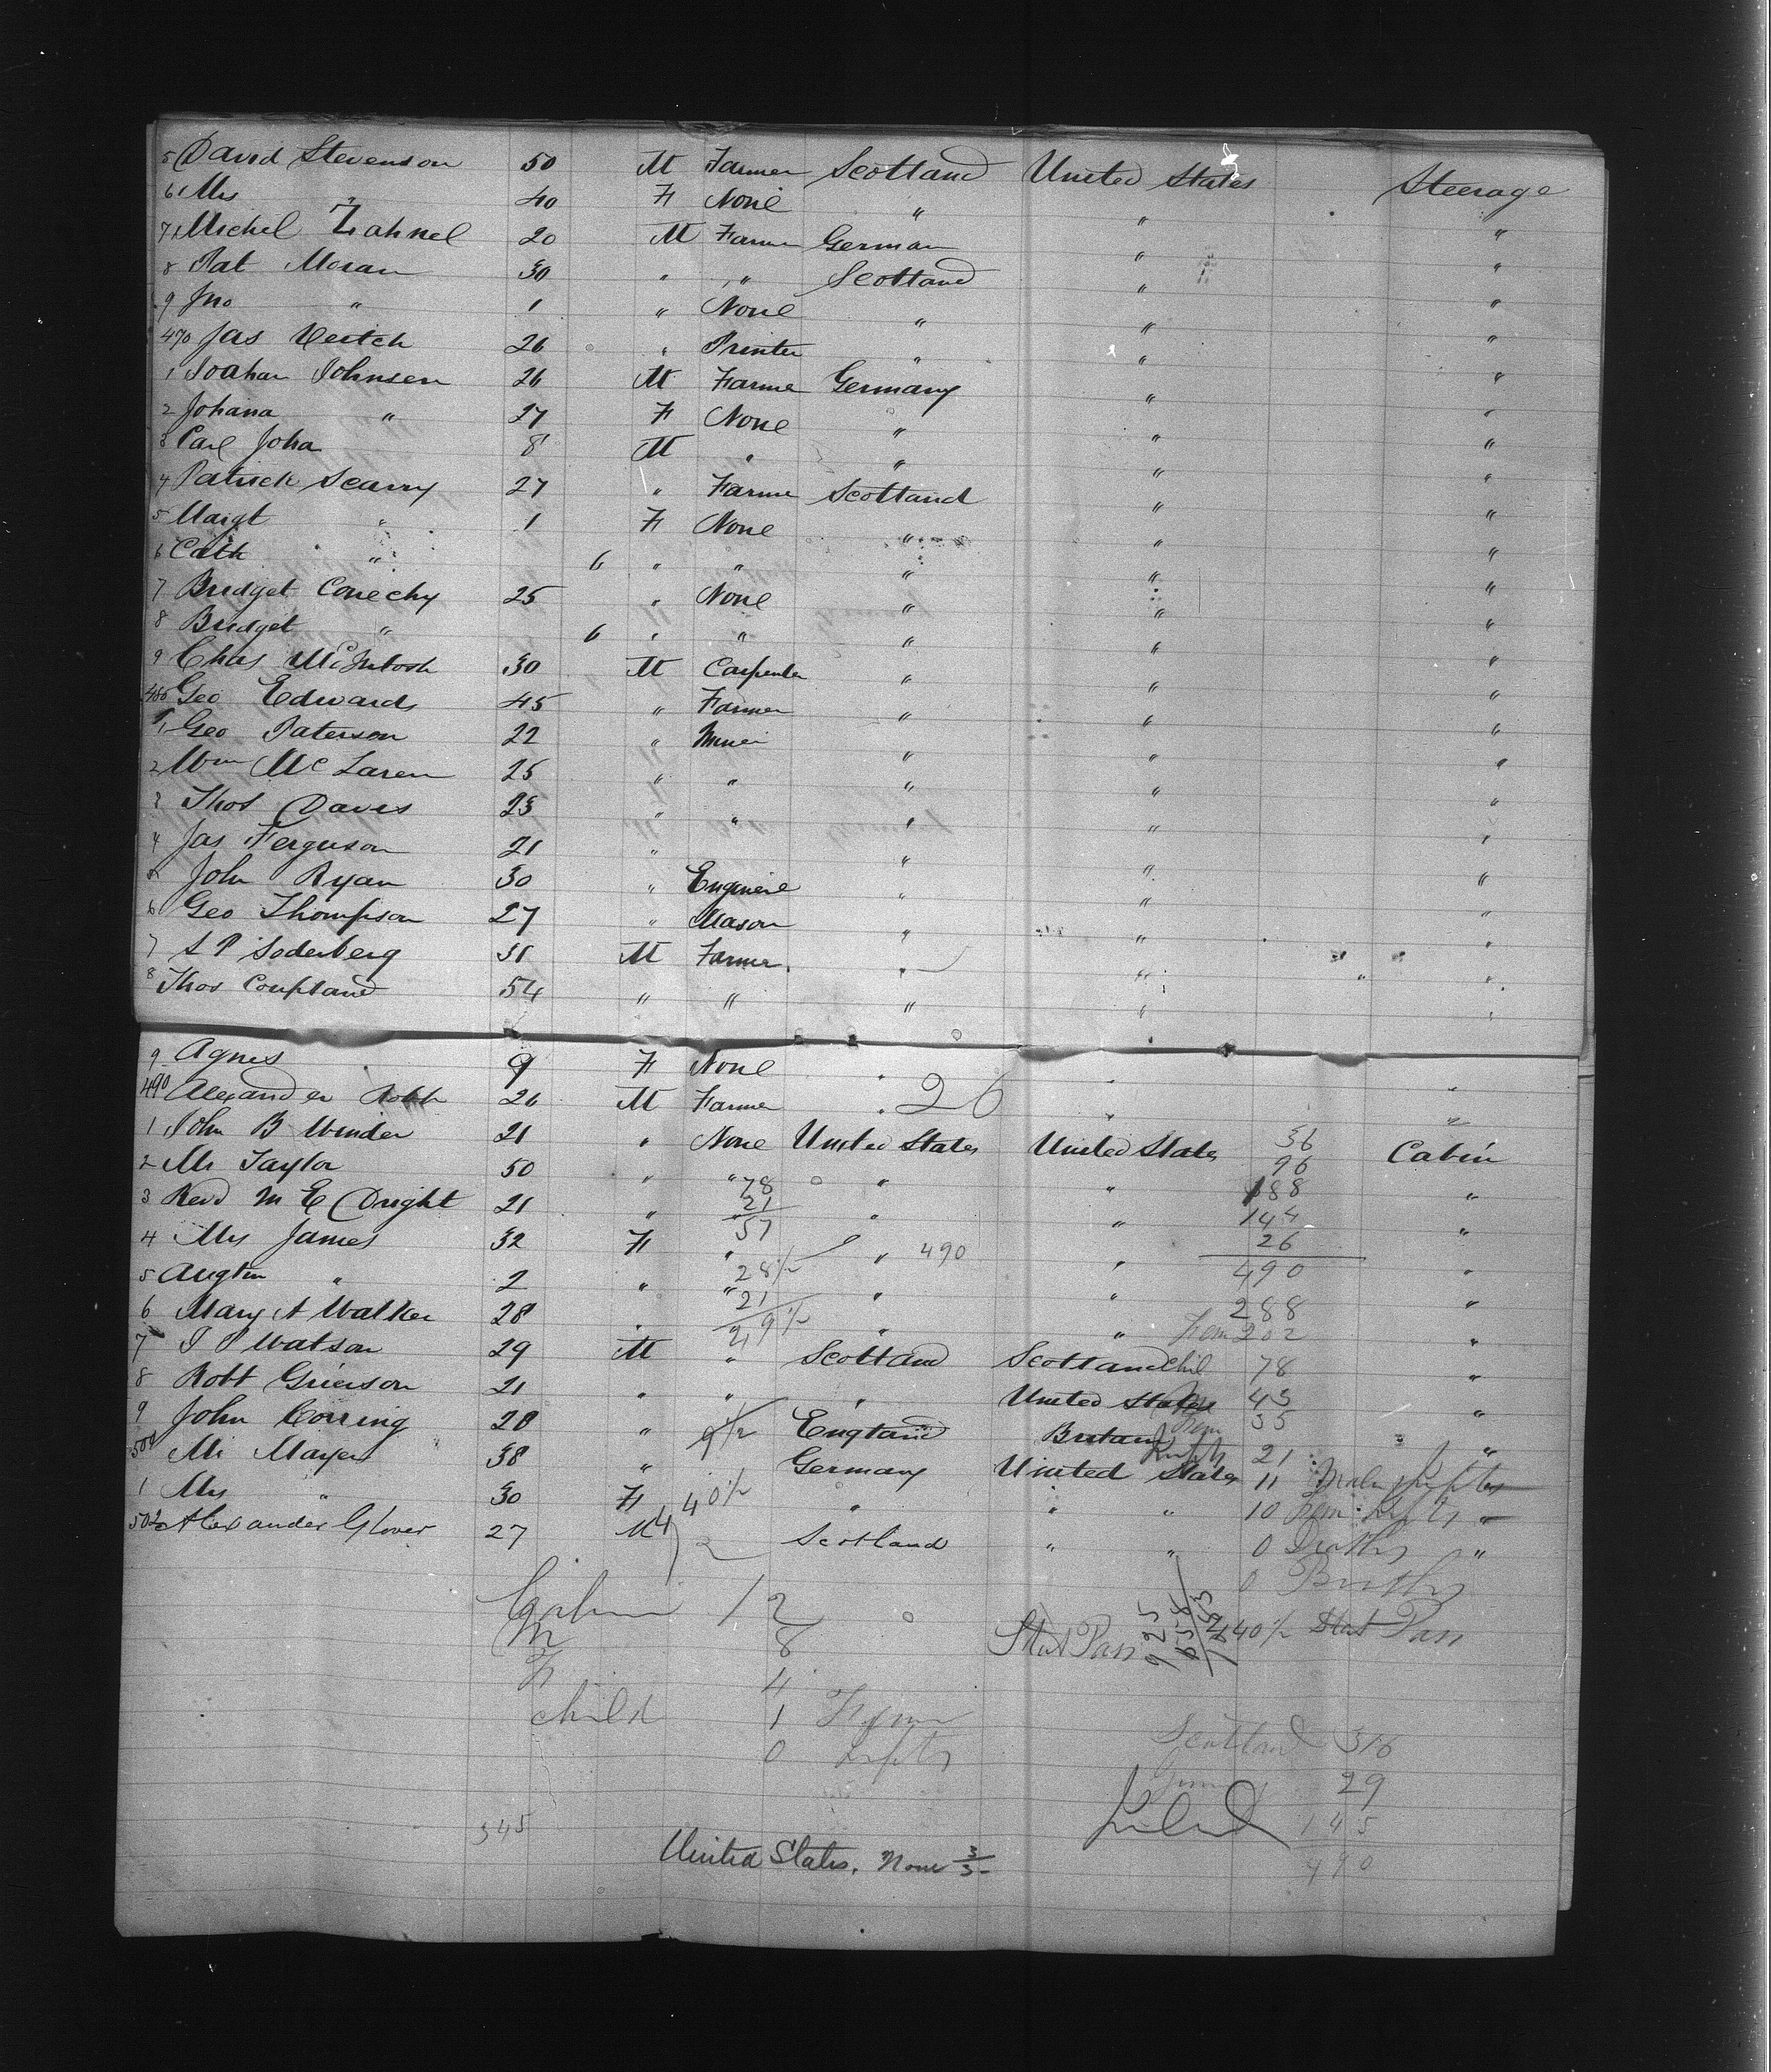 5 David Stevenson 50 M Farmer Scotland United States Steerage
6 Mrs " 40 F None " " "
7 Michel Zahnel 20 M Farmer German " "
8 Pat Moran 30 " " Scotland " "
9 Jno " 1 " None " " "
470 Jas Veitch 26 " Printer " " "
1 Joahan Johnsen 26 M Farme Germany " "
2 Johana " 27 F None " " "
3 Carl Joha 8 M " " " "
4 Patrick Scarry 27 " Farme Scotland " "
5 Margt " 1 F None " " "
6 Cath " 6 " " " " "
7 Bridget Conechy 25 " None " " "
8 Bridget " 6 " " " " "
9 Chas McIntosh 30 M Carpenter " " "
480 Geo Edwards 45 " Farmer " " "
1 Geo Paterson 22 " Miner " " "
2 Wm McLaren 25 " " " " "
3 Thos Davis 23 " " " " "
4 Jas Ferguson 21 " " " "
5 John Ryan 30 " Engineer " " "
6 Geo Thompson 27 " Mason " " "
7 S P Soderberg 31 M Farmer " " "
8 Thos Coupland 54 " " " " "
9 Agnes 9 F None " " "
490 Alexander Robb 26 M Farmer " 26 " "
1 John B Winder 21 " None United States United States 36 Cabin
2 Mr Taylor 50 " " 78 " " 96 188 "
3 Revd M E Dright 21 " " 21 57 " " 144 "
4 Mrs James 32 F " " 490 " 26 490 "
5 Augtin " 2 " " 28½ " " "
6 Mary A Walker 28 " " 21 " " 288 Fem 202 "
7 J P Watson 29 M " Scotland Scotland Chil 78 "
8 Robt Grierson 21 " " " United States 43 "
9 John Corring 28 " England Britain 35 "
500 Mr Mayer 38 " Germany United States 21 11 Male Infts
1 Mrs " 30 F 40½ " " " 10 Fem Infts "
502 Alexander Glover 27 M Scotland " " 0 Deaths "
0 Births
Cabin 12
M 8 Stat Pass 440½ Stat Pass
F 4
Child 1 Fem
0 Infts
Scotland 316
Germ 29
Ireland 145
490
345
United States. None 3/3